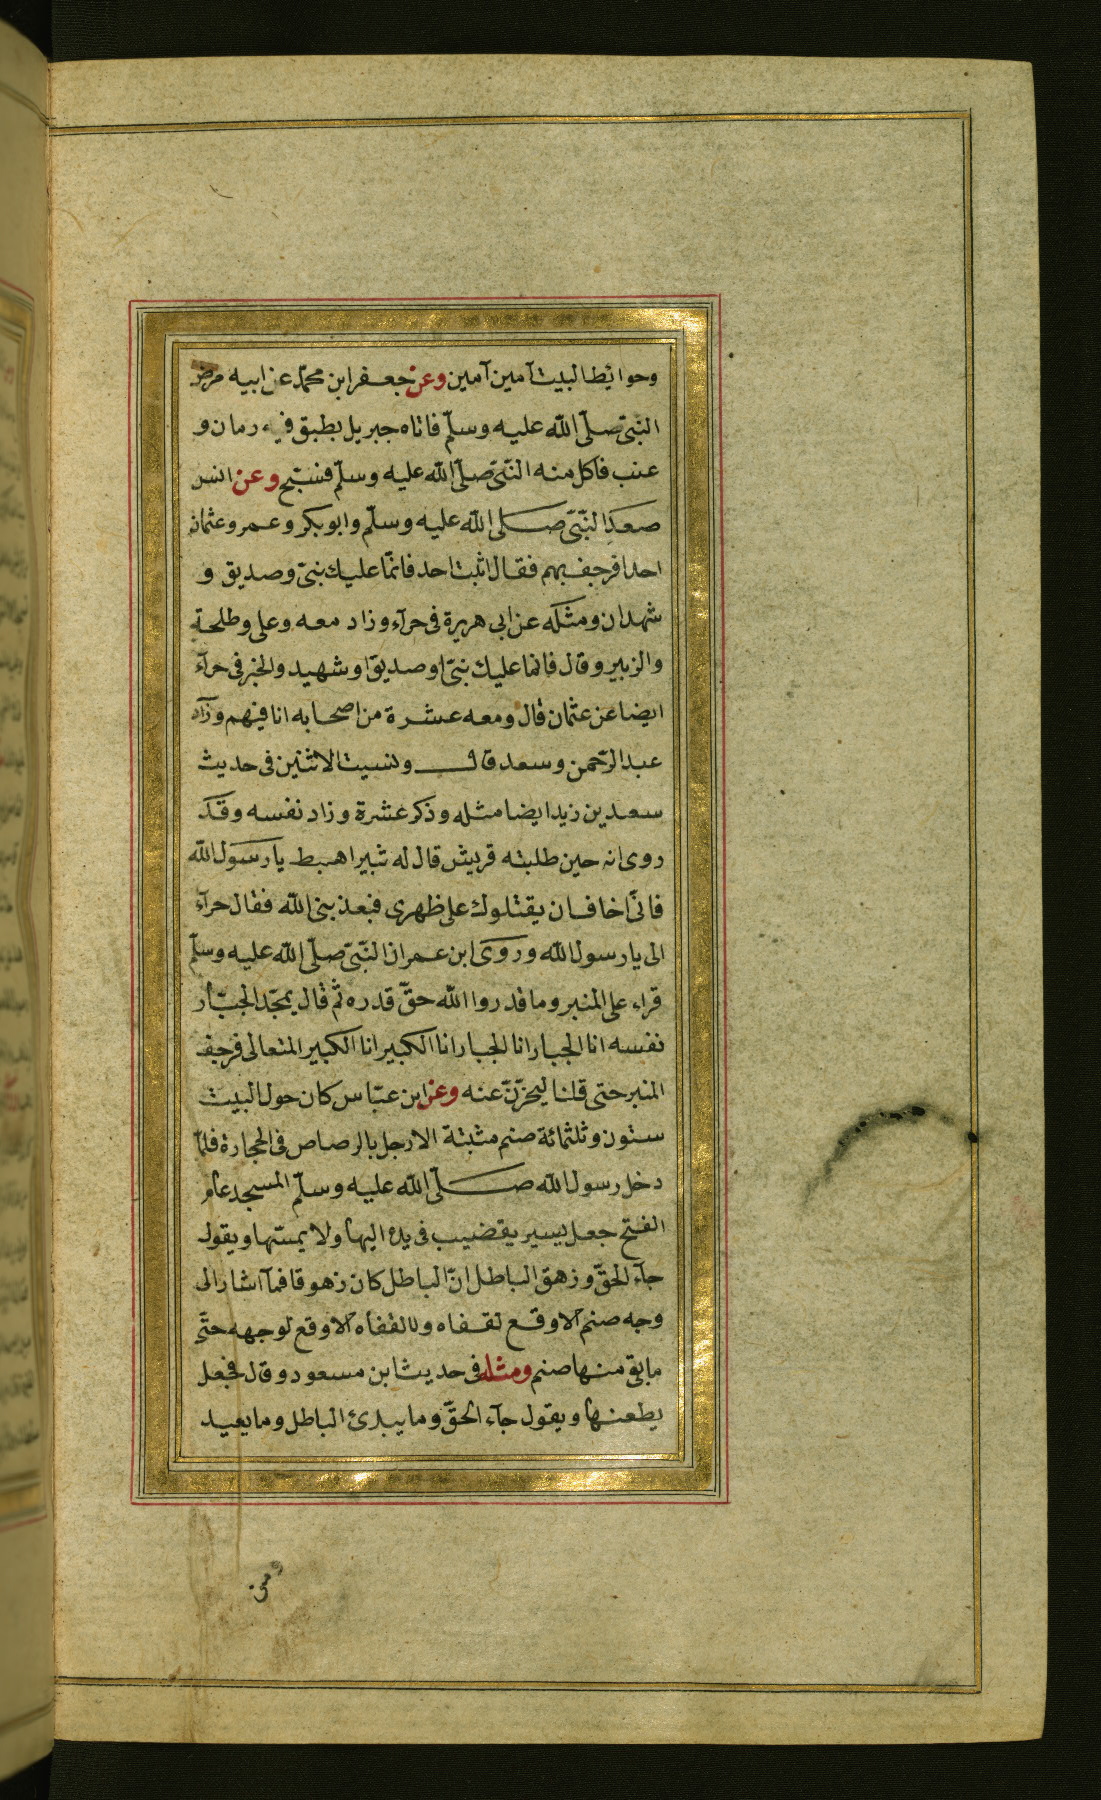 وحوائط البيت آمين آمين وعن جعفر ابن محمّد عن ابيه مرض
النّبىّ صلّى اللّه عليه وسلّم فاتاه جبريل بطبق فيه رمان و
عنب فاكل منه النّبىّ صلّى اللّه عليه وسلّم فسبّح وعن انس
صعد النّبىّ صلى اللّه عليه وسلّم وابوبكر وعمر وعثمان
احدا فرجف بهم فقال اثبت احد فانّما عليك نبىّ وصديق و
شهدان ومثله عن ابى هريرة فى حرآء وزاد معه وعلى وطلحة
والزبير وقال فانما عليك نبىّ او صديق او شهيد والخبر فى حرآء
ايضا عن عثمان قال ومعه عشرة من اصحابه انا فيهم وزاد
عبد الرّحمن وسعد قال ونسيت الاثنين فى حديث
سعد بن زيد ايضا مثله وذكر عشرة وزاد نفسه وقد
روى انه حين طلبته قريش قال له ثبير اهبط يا رسول اللّه
فانّى اخاف ان يقتلوك على ظهرى فيعذبنى اللّه فقال حرآء
الى يا رسول اللّه وروى ابن عمر ان النّبىّ صلّى اللّه عليه وسلّم
قراء على المنبر وما قدروا اللّه حقّ قدره ثم قال يمجّد الجبّار
نفسه انا الجبار انا الجبار انا الكبير انا الكبير المتعالى فرجف
المنبر حتى قلنا ليخرّنّ عنه وعن ابن عبّاس كان حول البيت
ستون وثلثمائة صنم مثبتة الارجل بالرصاص فى الحجارة فلمّا
دخل رسول اللّه صلّى اللّه عليه وسلّم المسجد عام
الفتح جعل يسير بقضيب فى يده اليها ولا يمسّها ويقول
جآء الحقّ وزهق الباطل انّ الباطل كان زهوقا فمآ اشار الى
وجه صنم الا وقع لقفاه ولا لقفاه الا وقع لوجهه حتّى
ما بقى منها صنم ومثله فى حديث ابن مسعود وقال فجعل
يطعنها ويقول جآء الحقّ وما يبدئ الباطل وما يعيد
ومن